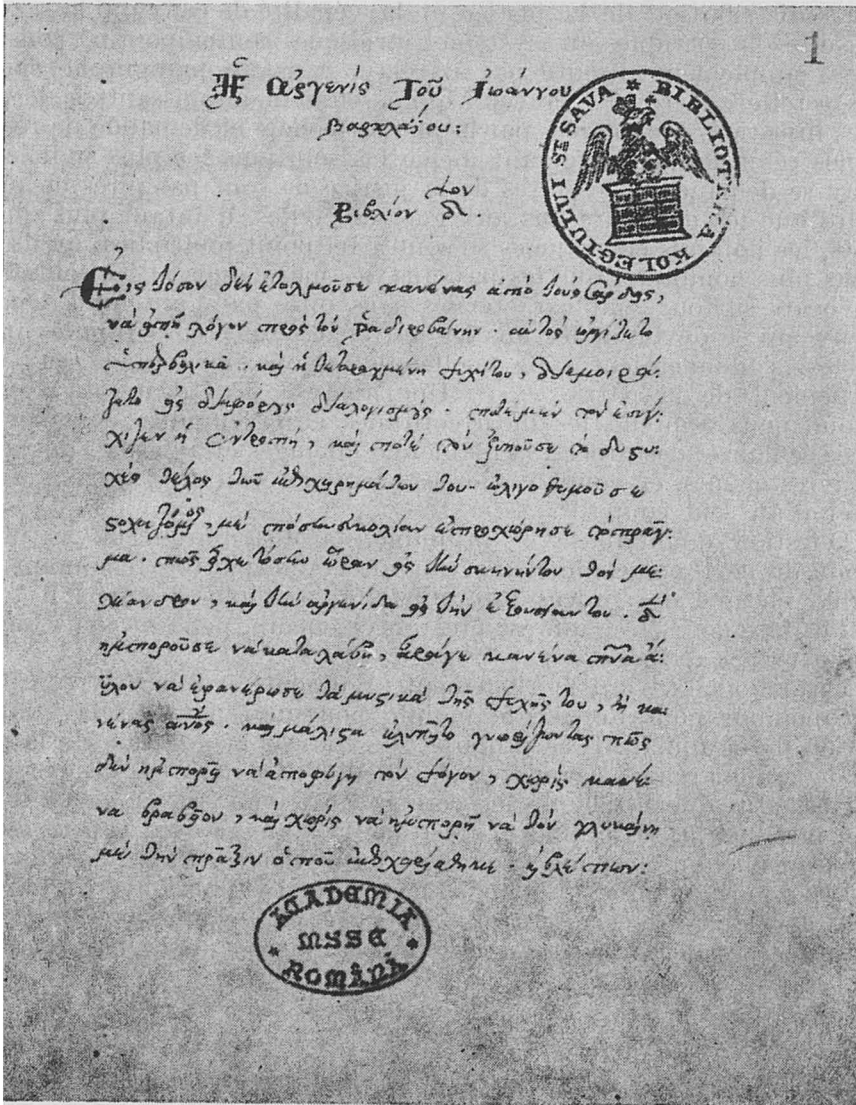 1
Ἡ Ἀργενὶς Τοῦ Ἰωάννου
Βαρκλαΐου:
BIBLIOTEKA KOLEGIULUI STB SAVA
Βιβλίον δ τον
Εἰς τόσον δὲν ἐτολμοῦσε κανένας ἀπὸ τοὺς Σάρδους,
νὰ εἰπῇ λόγον πρὸς τὸν Ῥαδιροβάνην. αὐτὸς ὠργίζετο
ὑπερβολικά. καὶ ἡ τεταραγμένη ψυχή του, διεμοιρά:
ζετο εἰς διαφόρους διαλογισμούς. ποτὲ μὲν τὸν ἐσύγ:
χιζεν ἡ ἐντροπή, καὶ ποτὲ τὸν ξυποῦσε τὸ δυςυ:
χὲς τέλος τῶν ἐπιχειρημάτων του. ὠλιγοθυμοῦσε
ςοχαζόμενος, μὲ πόσην εὐκολίαν ἐπροχώρησε τὸ πρᾶγ:
μα. πῶς εἶχε τόσην ὥραν εἰς τὴν σκηνήν του τὸν με:
λέανδρον, καὶ τὴν ἀργενίδα εἰς τὴν ἐξουσίαν του. δὲν
ἠμποροῦσε νὰ καταλάβῃ, ἆράγε κανένα πνεῦμα ἄ:
ϋλον νὰ ἐφανέρωσε τὰ μυςικὰ τῆς ψυχῆς του, ἢ κα:
νένας ἄνος. καὶ μάλιςα ἐλυπεῖτο γνωρίζωντας πῶς
δὲν ἠμπορεῖ νὰ ἀποφύγῃ τὸν ψόγον, χωρὶς κανέ:
να βραβεῖον, καὶ χωρὶς νὰ ἠμπορῇ νὰ τὸν γλυκαίνῃ
μὲ τὴν πρᾶξιν ὁποῦ ἐπιχειρίσθηκε. ἐβλέπων:
ACADEMIA
MSSE
ROMÂNĂ